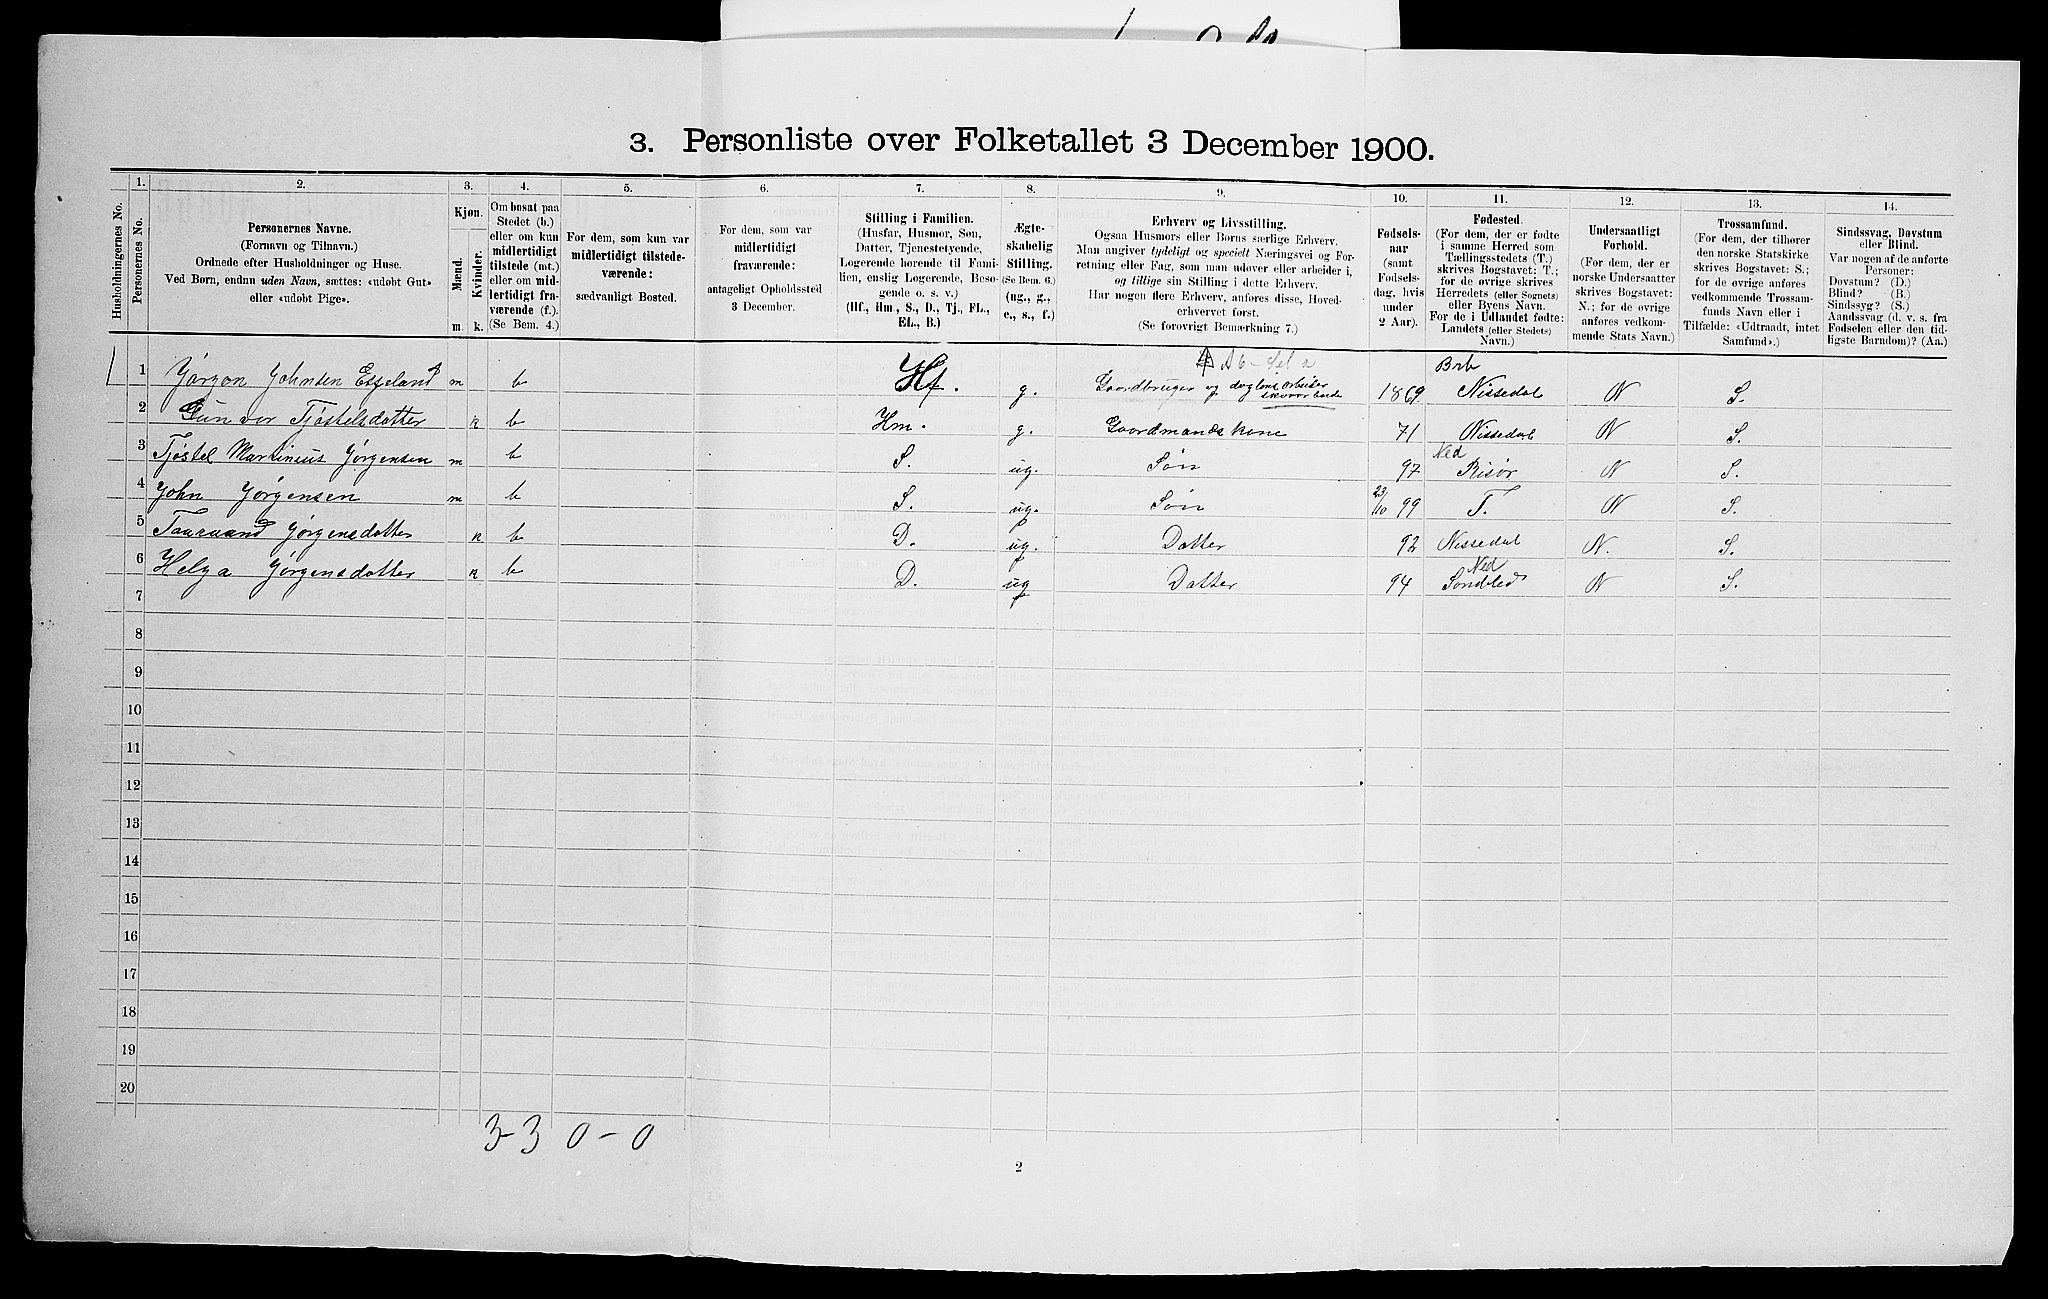 3. Personliste over Folketallet 3 December 1900.
1. 2. 3. 4. 5. 6. 7. 8. 9. 10. 11. 12. 13. 14.
Husholdningernes No.
Personernes No.
Personernes Navne.
(Fornavn og Tilnavn.)
Ordnede efter Husholdninger og Huse.
Ved Børn, endnu uden Navn, sættes: «udøbt Gut»
eller «udøbt Pige».
Kjøn.
Mænd.
Kvinder.
m. k.
Om bosat paa
Stedet (b.)
eller om kun
midlertidigt
tilstede (mt.)
eller om mid-
lertidigt fra-
værende (f.).
(Se Bem. 4.)
For dem, som kun var
midlertidigt tilstede-
værende:
sædvanligt Bosted.
For dem, som var
midlertidigt
fraværende:
antageligt Opholdssted
3 December.
Stilling i Familien.
(Husfar, Husmor, Søn,
Datter, Tjenestetyende,
Logerende hørende til Fami-
lien, enslig Logerende, Besø-
gende o. s. v.)
(Hf., Hm., S., D., Tj., FL.,
EL., B.)
Ægte-
skabelig
Stilling.
(Se Bem. 6.)
(ug., g.,
e., s., f.)
Erhverv og Livsstilling.
Ogsaa Husmors eller Børns særlige Erhverv.
Man angiver tydeligt og specielt Næringsvei og For-
retning eller Fag, som man udøver eller arbeider i,
og tillige sin Stilling i dette Erhverv.
Har nogen flere Erhverv, anføres disse, Hoved-
erhvervet først.
(Se forøvrigt Bemærkning 7.)
Fødsels-
aar
(samt
Fødsels-
dag, hvis
under
2 Aar).
Fødested.
(For dem, der er fødte
i samme Herred som
Tællingsstedets (T.)
skrives Bogstavet: T.;
for de øvrige skrives
Herredets (eller Sognets)
eller Byens Navn.
For de i Udlandet fødte:
Landets (eller Stedets)
Navn.)
Undersaatligt
Forhold.
(For dem, der er
norske Undersaatter
skrives Bogstavet:
N.; for de øvrige
anføres vedkom-
mende Stats Navn.)
Trossamfund.
(For dem, der tilhører
den norske Statskirke
skrives Bogstavet: S.;
for de øvrige anføres
vedkommende Trossam-
funds Navn eller i
Tilfælde: «Udtraadt, intet
Samfund».)
Sindssvag, Døvstum
eller Blind.
Var nogen af de anførte
Personer:
Døvstum? (D.)
Blind? (B.)
Sindssyg? (S.)
Aandssvag (d. v. s. fra
Fødselen eller den tid-
ligste Barndom)? (Aa.)
1 Jørgon Johnsen Esgeland m b Hf. g. Gaardbruger og daglönsarbeider 1869 Nissedal N S.
2 Gunvor Tjøstelsdatter k b Hm. g. Gaardmandskone 71 Nissedal N S.
3 Tjøstel Martinius Jørgensen m b S. ug. Søn 97 Ned Risør N S.
4 John Jørgensen m b S. ug. Søn 23/10 99 T. N S.
5 Jørgensdatter k b D. ug. Datter 92 Nissedal N. S.
6 Helga Jørgensdatter k b D. ug Datter 94 Ned Søndeled N S.
7
8
9
10
11
12
13
14
15
16
17
18
19
20
3-3 0-0
2